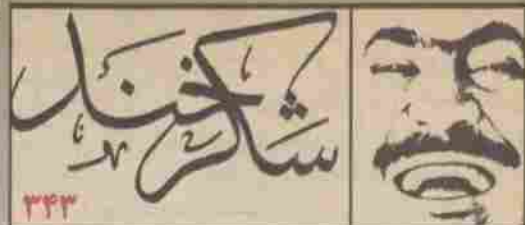 شکرخند
۳۴۳